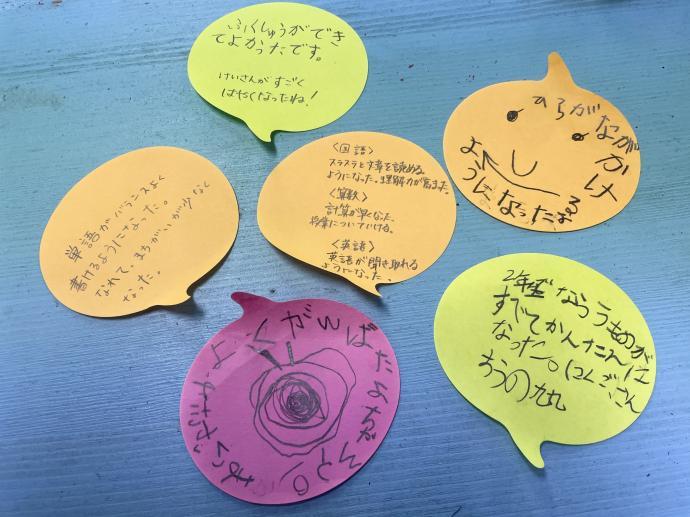 ふくしゅうができ
てよかったです。
けいさんがすごく
はやくなったね!
ひらがなが
かけ
るよ
うになったよ
単語がバランスよく
書けるようになった。
なれて、まちがいが少なく
なった。
〈国語〉
スラスラと文章を読める
ようになった。理解力が高まった。
〈算数〉
計算が早くなった。
授業についていける。
〈英語〉
英語が聞き取れる
ようになった。
よくがんば
2年生 ならうものが
すべてかんたんに
なった。